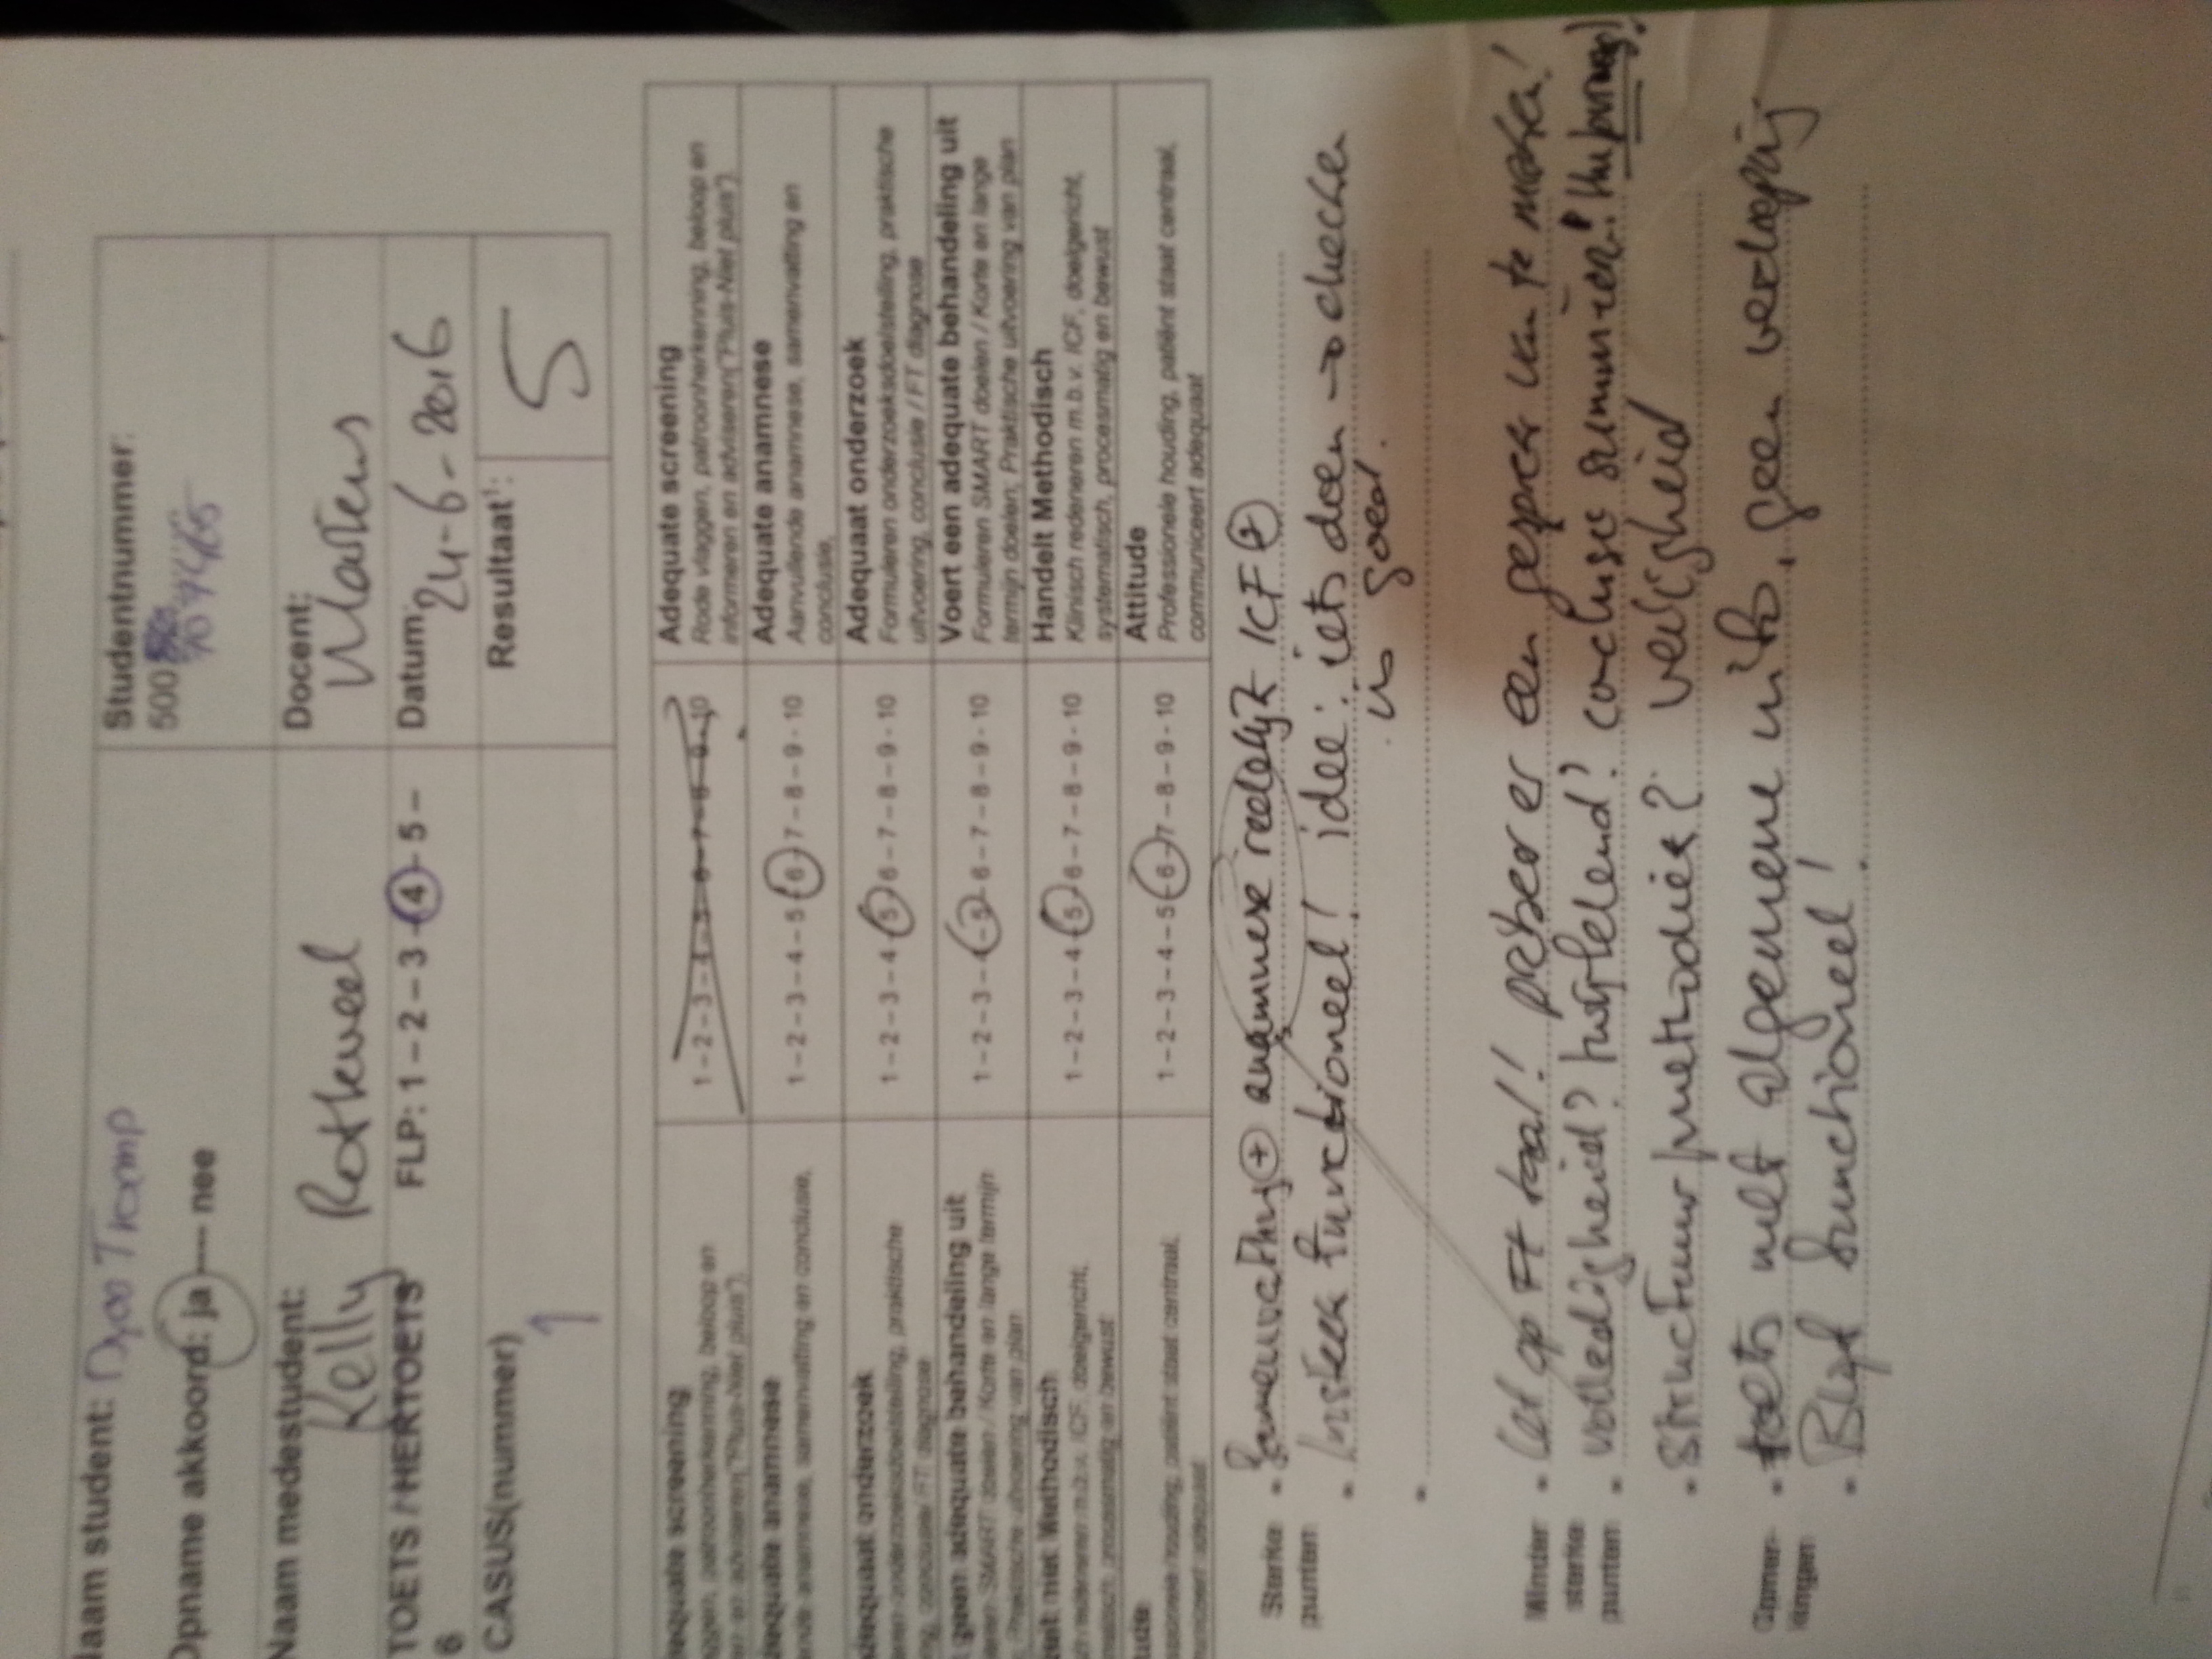 Naam student: Tromp
Studentnummer:
500
Opname akkoord: ja --- nee
Naam medestudent:
Kelly Rotteveel
Docent:
Martens
TOETS / HERTOETS FLP: 1 – 2 – 3 – 4 – 5 –
6
Datum:
24-6-2016
CASUS(nummer)
1
Resultaat¹:
5
equate screening
vlaggen, patroonherkenning, beloop en
en adviseren("Pluis-Niet pluis").
1 – 2 – 3 – 4 – 5 – 6 – 7 – 8 – 9 - 10
Adequate screening
Rode vlaggen, patroonherkenning, beloop en
informeren en adviseren("Pluis-Niet pluis").
dequate anamnese
anamnese, samenvatting en conclusie,
1 – 2 – 3 – 4 – 5 – 6 – 7 – 8 – 9 - 10
Adequate anamnese
Aanvullende anamnese, samenvatting en
conclusie,
dequaat onderzoek
onderzoeksdoelstelling, praktische
conclusie / FT diagnose
1 – 2 – 3 – 4 – 5 – 6 – 7 – 8 – 9 - 10
Adequaat onderzoek
Formuleren onderzoeksdoelstelling, praktische
uitvoering, conclusie / FT diagnose
geen adequate behandeling uit
SMART doelen / Korte en lange termijn
Praktische uitvoering van plan
1 – 2 – 3 – 4 – 5 – 6 – 7 – 8 – 9 - 10
Voert een adequate behandeling uit
Formuleren SMART doelen / Korte en lange
termijn doelen; Praktische uitvoering van plan
niet Methodisch
redeneren m.b.v. ICF, doelgericht,
procesmatig en bewust
1 – 2 – 3 – 4 – 5 – 6 – 7 – 8 – 9 - 10
Handelt Methodisch
Klinisch redeneren m.b.v. ICF, doelgericht,
systematisch, procesmatig en bewust
houding, patiënt staat centraal,
adequaat
1 – 2 – 3 – 4 – 5 – 6 – 7 – 8 – 9 - 10
Attitude
Professionele houding, patiënt staat centraal,
communiceert adequaat
Sterke
punten
• Samenvatting + anamnese redelijk ICF +
• Insteek functioneel! idee: iets doen → checken
is goed.
•
Minder
sterke
punten
• Let op FT taal! probeer er een gesprek van te maken!
• volledigheid? conclusie summier!
• structuur/methodiek? veiligheid
• toets mult algemene info, geen verdieping
• Blijf functioneel!